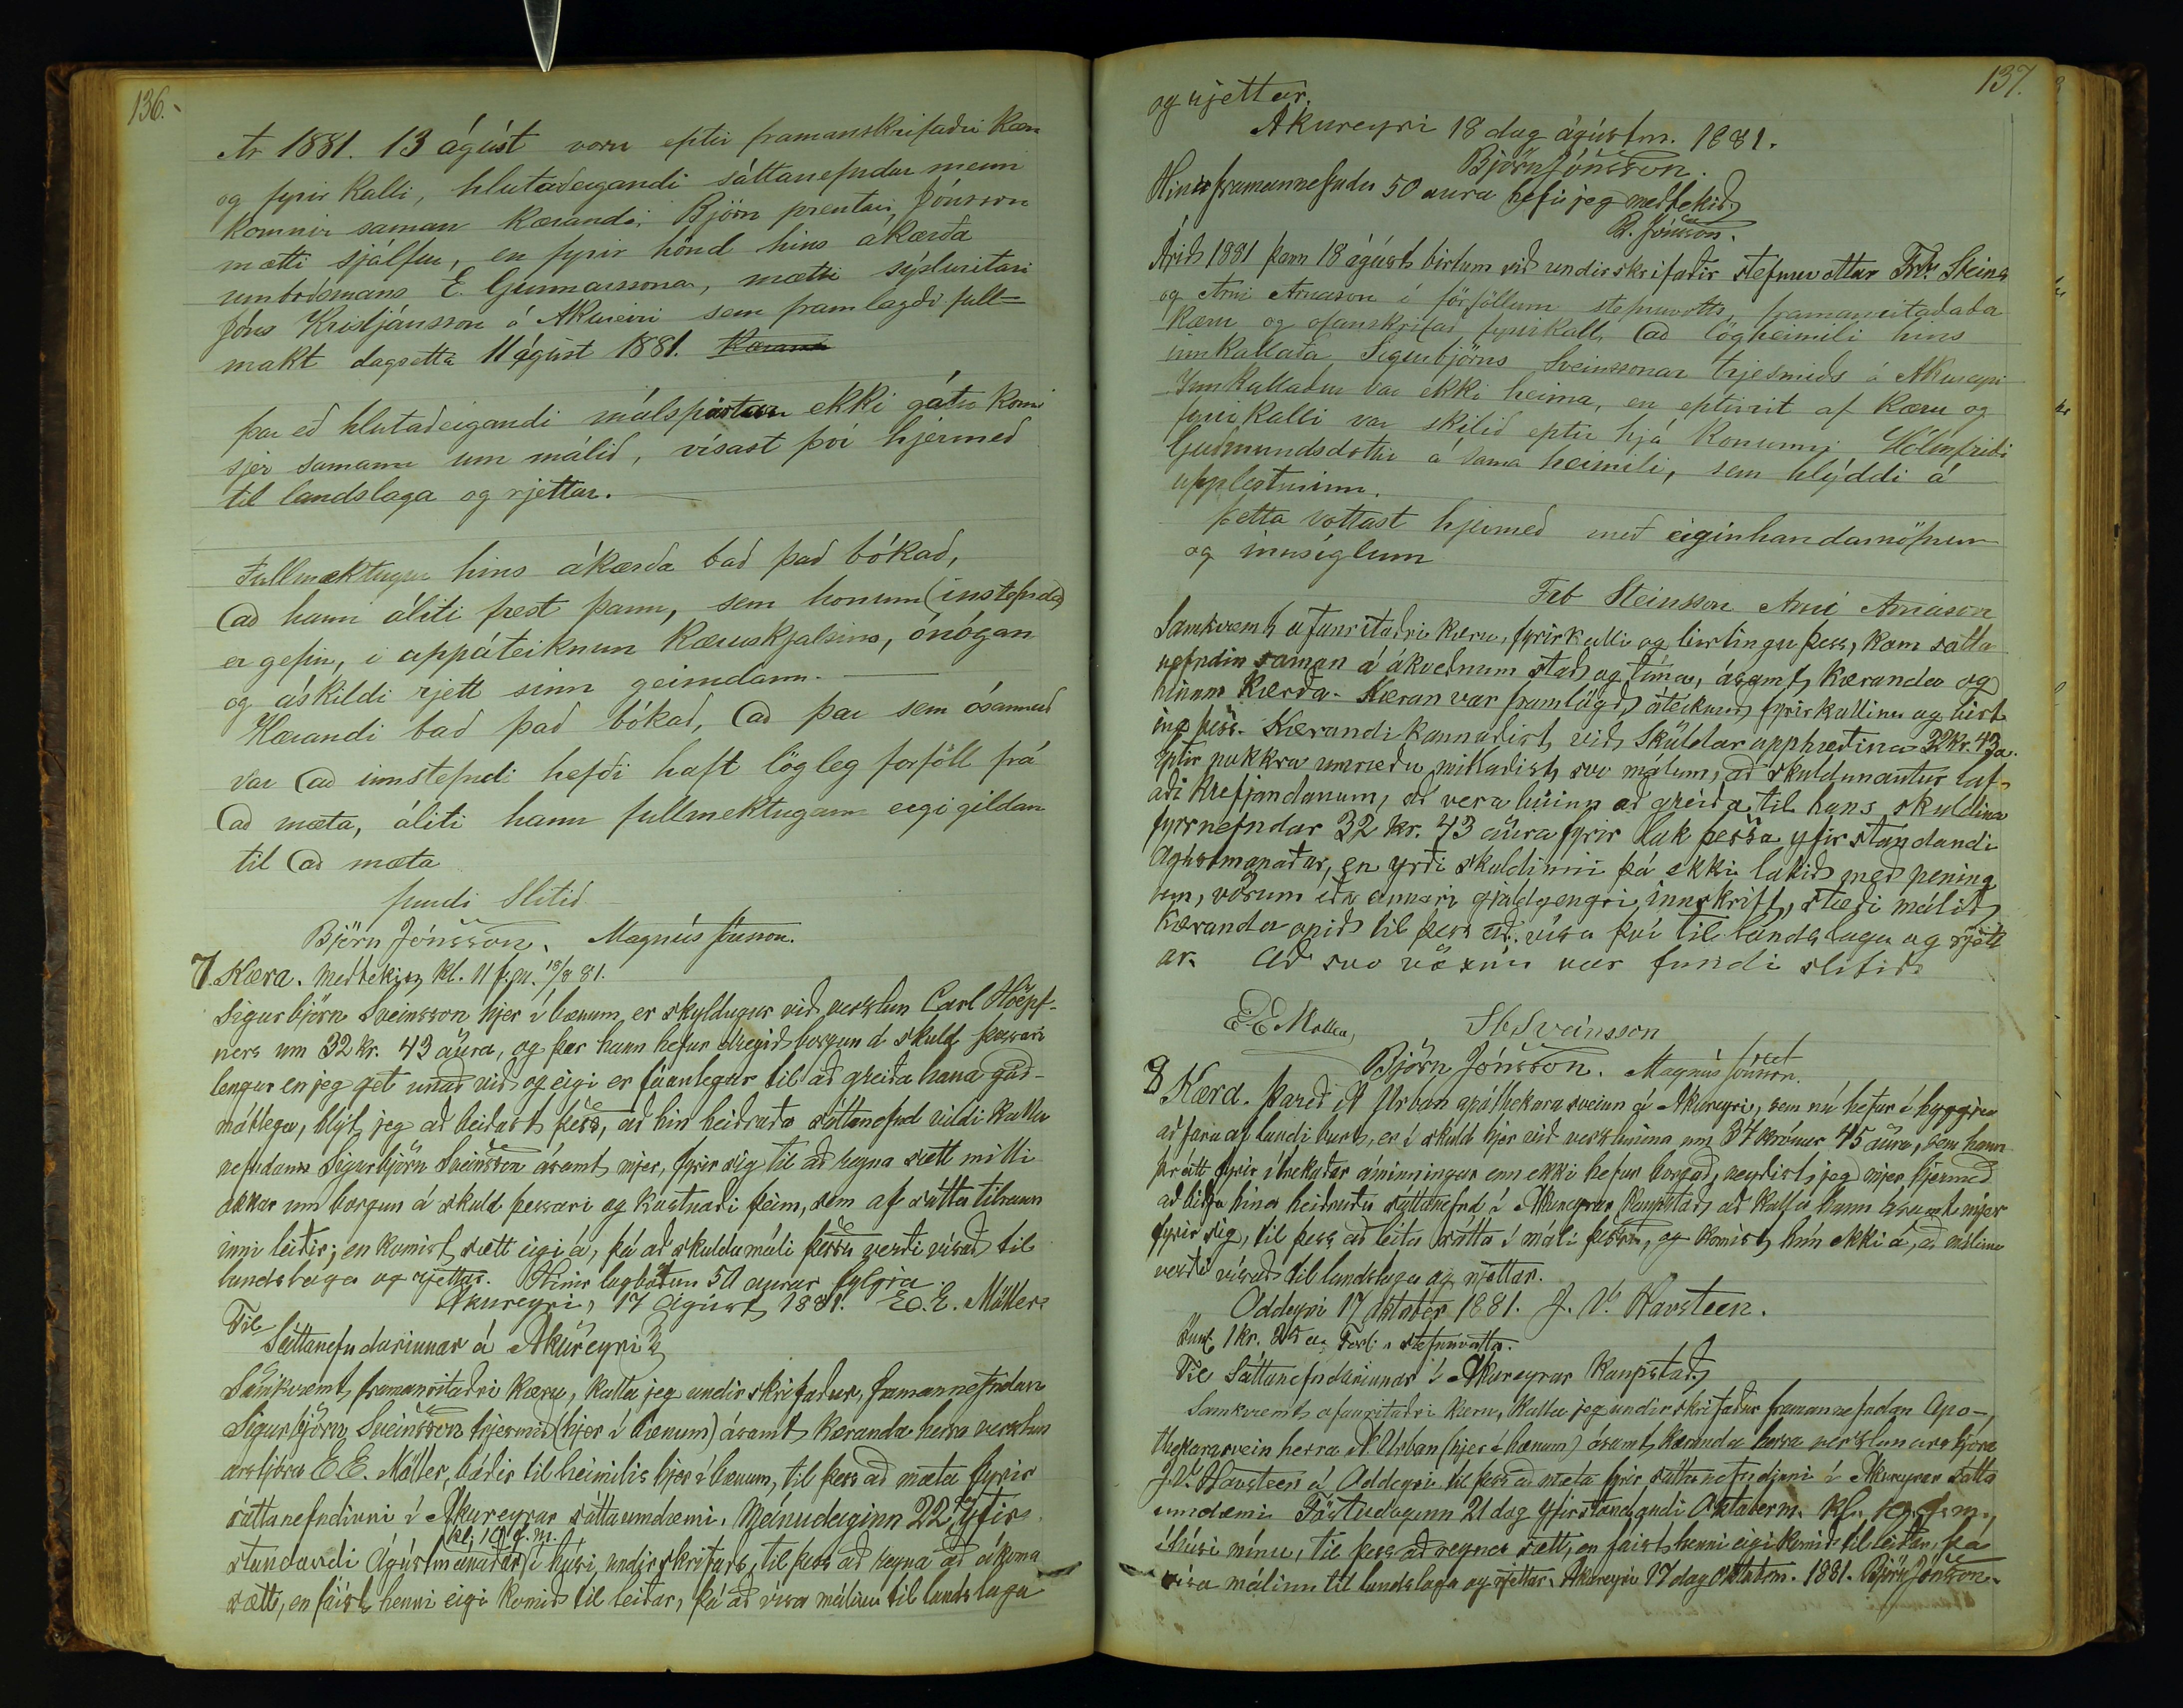 136.
Ár 1881. 13 ágúst voru eptir framanskrifaðri kæru
og fyrir kalli, hlutaðeigandi sáttanefndar menn
komnir saman kærandi Björn prentari Jónsson
mætti sjálfur, en fyrir hönd hins ákærða
umboðsmans E. Gunnarssonar, mætti sýsluritari
Jóns Kristjánsson á Akureiri sem framlagði full-
makt dagsetta 11 ágúst 1881.
þar eð hlutaðeigandi málspartar ekki gátu komi
sjer samann um málið, vísast því hjermeð
til landslaga og rjettar.
Fullmæktugur hins ákærða bað það bókað,
að hann áliti frest þann, sem honum (instefnda)
er gefin, í uppáteiknun kæruskjalsins, ónógan
og áskildi rjett sinn geimdann.
Kærandi bað það bókað, að þar sem ósannað
var að innstefndi hefði haft lögleg forföll frá
að mæta, áliti hann fullmektugann eigi gildan
til að mæta
fundi slitið
Björn Jónsson. Magnús Jónsson.
7. Kæra. Meðtekin kl. 11 f.m. 18/8 81.
Sigurbjörn Sveinsson hjer í bænum er skyldugur við verslun Carl Höepf-
ners um 32 kr. 43 aura, og þar hann hefur dregið borgun á skuld þessari
lengur en jeg get unað við og eigi er fáanlegur til að greiða hana góð-
mótlega, hlýt jeg að beiðast þess, að hin heiðraða sáttanefnd vildi kalla
nefndann Sigurbjörn Sveinsson ásamt mjer, fyrir sig til að reyna sætt milli
okkar um borgun á skuld þessari og kostnaði þeim, sem af sátta tilraun
inni leiðir; en komist sætt eigi á, þá að skuldamáli þessu verði vísað til
landslaga og rjettar. Hinir lögboðnu 50 aurar fylgja.
Akureyri, 17 ágúst 1881. E. E. Möller
Til
Sáttanefndarinnar á Akureyri
Samkvæmt framanritaðri kæru, kalla jeg undirskrifaður, framannefndan
Sigurbjörn Sveinsson trjesmið (hjer í bænum) ásamt kæranda herra verzlun
arstjóra E E. Möller, báðir til heimilis hjer í bænum, til þess að mæta fyrir
sáttanefndinni í Akureyrar sáttaumdæmi, Mánudaginn 22. yfir-
kl. 10 f. m.
standandi Ágústmánaðar í húsi undirskrifaðs, til þess að reyna að ákoma
sætt, en fáist henni eigi komið til leiðar, þá að vísa málinu til landslaga
137.
og rjettar.
Akureyri 18 dag ágústm. 1881.
Björn Jónsson.
Hina framannefndu 50 aura hefir jeg meðtekið
B. Jónsson.
Árið 1881 þann 18 ágúst birtum við undirskrifaðir stefnuvottar Frb. Steins
og Árni Árnason í förföllum stefnuvotts, framanritaðaða
kæru og ofanskrifað fyrirkall, að lögheimili hins
innkallaða Sigurbjörns Sveinssonar trjesmiðs á Akureyri
Innkallaður var ekki heima, en eptirrit af kæru og
fyrirkalli var skilið eptir hjá konunni Hólmfríði
Guðmundsdottir á sama heimili, sem hlýddi á
upplestrinum.
Þetta vottast hjermeð með eiginhandarnöfnum
og innsiglum
Frb Steinsson Arni Arnason
Samkvæmt ofanritaðri kæru, fyrirkalli og birtingu þess, kom sátta
nefndin saman á ákveðnum stað og tíma, ásamt kæranda og
hinum kærða. Kæran var framlögð, áteiknuð fyrirkallinu og birt
ing þess. Kærandi kannaðist við skuldar upphæðina 32 kr. 43 a.
Eptir nokkra umræðu miðlaðist svo málum, að skuldunautur lof-
aði krefjandanum, að vera búinn að greiða til hans skuldina
fyrrnefndar 32 kr. 43 aura fyrir lok þessa yfirstandandi
Ágústmánaðar, en yrði skuldinni þá ekki lokið með pening
um, vörum eða annari gjaldgengri innskrift, stæði málið
kæranda opið til þess að vísa því til landslaga og rjett
ar. Að svo vöxnu var fundi slitið
E E Möller SbSveinsson
Björn Jónsson. Magnús Jónsson.
8 Kæra. Þareð N Urban apóthekarasveinn á Akureyri, sem nú hefur í hyggju
að fara af landi burt, er í skuld hjer við verslunina um 34 krónur 45 aura, sem hann
þrátt fyrir ítrekaðar áminningar enn ekki hefur borgað, neyðist jeg mjer hjermeð
að biðja hina heiðruðu sáttanefnd í Akureyrar kaupstað að kalla hann ásamt mjer
fyrir sig, til þess að leita sátta í máli þessu, og komist hún ekki á, að málinu
verði vísað til landslaga og rjettar.
Oddeyri 17 Oktober 1881. J. V. Havsteen.
Til Sáttanefndarinnar í Akureyrar Kaupstað
Samkvæmt ofanritaðri kæru, kalla jeg undirskrifaður framannefndan Apo-
thekarasvein herra N. Urban (hjer í bænum) ásamt kæranda herra verslunarstjóra
J. V. Havsteen á Oddeyri til þess að mæta fyrir sáttanefndinni í Akureyrar sátta
umdæmi Föstudaginn 21 dag yfirstandandi Oktoberm. kl. 10 f. m.,
í húsi mínu, til þess að reyna sætt, en fáist henni eigi komið til leiðar, þá
vísa málinu til landslaga og rjettar. Akureyri 17 dag Oktobm. 1881. Björn Jónsson.